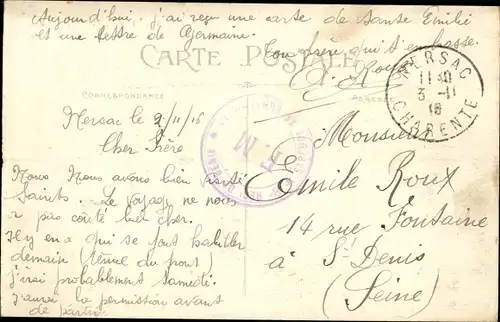 Aujourd'hui j'ai reçu une carte de Tante Emilie
et une lettre de Germaine.
Ton frère qui t'embrasse.
Roux
CARTE POSTALE
CORRESPONDANCE
ADRESSE
NERSAC
11 10
3 -11
16
CHARENTE
Nersac le 2/11/16
Cher Frère
Nous avons bien visité
Saintes. Le voyage ne nous
a pas coûté bien cher.
Il y en a qui se font habiller
demain (tenue du front)
J'irai probablement samedi.
J'aurai la permission avant
de partir.
Monsieur
Emile Roux
14 rue Fontaine
à St Denis
(Seine)